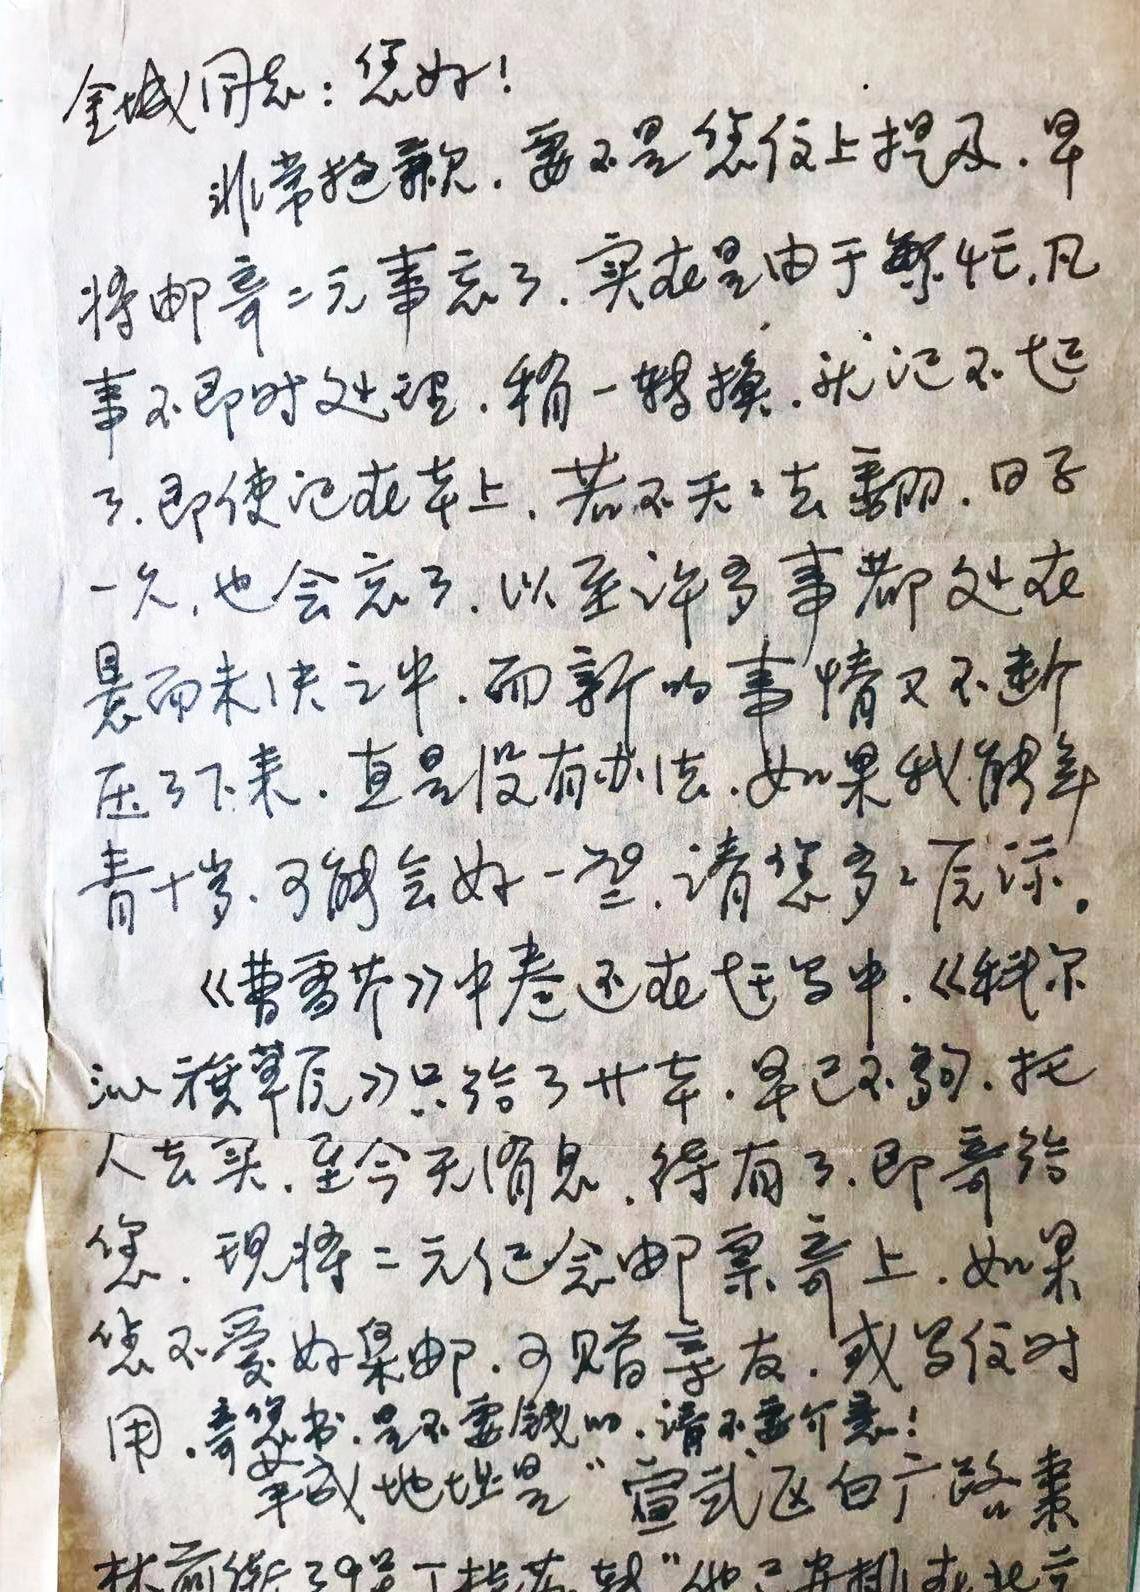 金城同志：您好！
非常抱歉，要不是您信上提及，早
将邮寄二元事忘了，实在是由于繁忙，凡
事不即时处理，稍一转换，就记不起
了，即使记在本上，若不天々去翻，日子
一久，也会忘了，以至许多事都处在
悬而未决之中，而新的事情又不断
压了下来，真是没有办法，如果我能年
青十岁，可能会好一些，请您多々原谅。
《曹雪芹》中卷还在赶写中，《科尔
沁旗草原》只给了廿本，早已不够，托
人去买，至今无消息，待有了，即寄给
您，现将二元纪念邮票寄上，如果
您不爱好集邮，可赠亲友，或写信时
用，寄您书，是不要钱的，请不要介意！
成地址是“宣武区白广路枣
林前街39号转”他已安排在北京